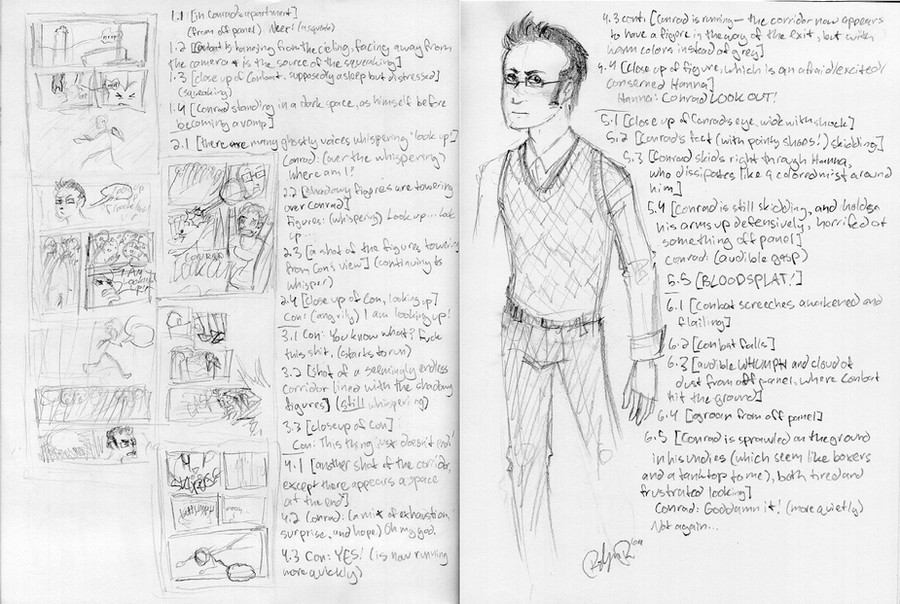 1.1 [in Conrad's apartment]
(from off panel) Neer! (a squeak)
1.2 [Conbat is hanging from the ceiling, facing away from
the camera & is the source of the squeaking]
1.3 [close up of Conbat, supposedly asleep but distressed]
(squeaking)
1.4 [Conrad standing in a dark space, as himself before
becoming a vamp]
2.1 [there are many ghostly voices whispering "look up"]
Conrad: (over the whispering)
where am I?
2.2 [shadowy figures are towering
over Conrad]
Figures: (whispering) Look up... look
up...
2.3 [a shot of the figures towering
from Con's view] (continuing to
whisper)
2.4 [close up of Con, looking up]
Con: (angrily) I am looking up!
3.1 Con: You know what? Fuck
this shit, (starts to run)
3.2 [shot of a seemingly endless
corridor lined with the shadowy
figures] (still whispering)
3.3 [closeup of Con]
Con: This thing just doesn't end!
4.1 [another shot of the corridor,
except there appears a space
at the end]
4.2 Conrad: (a mix of exhaustion,
surprise, and hope) Oh my god.
4.3 Con: YES! (is now running
more quickly)
I AM
LOOKING
UP!
CONRAD
4.3 cont: [Conrad is running— the corridor now appears
to have a figure in the way of the exit, but with
warm colors instead of grey]
4.4 [close up of figure, which is an afraid/excited/
conserned Hanna]
Hanna: Conrad LOOK OUT!
5.1 [close up of Conrad's eye, wide with shock]
5.2 [Conrad's feet (with pointy shoes!) skidding]
5.3 [Conrad skids right through Hanna,
who dissipates like a colored mist around
him]
5.4 [Conrad is still skidding, and holds
his arms up defensively, horrified at
something off panel]
Conrad: (audible gasp)
5.5 [BLOODSPLAT!]
6.1 [Conbat screeches awakened and
flailing]
6.2 [Conbat falls]
6.3 [audible WHUMPH and cloud of
dust from off panel, where Conbat
hit the ground]
6.4 [a groan from off panel]
6.5 [Conrad is sprawled on the ground
in his undies (which seem like boxers
and a tanktop to me), both tired and
frustrated looking]
Conrad: Goddamn it! (more quietly)
Not again...